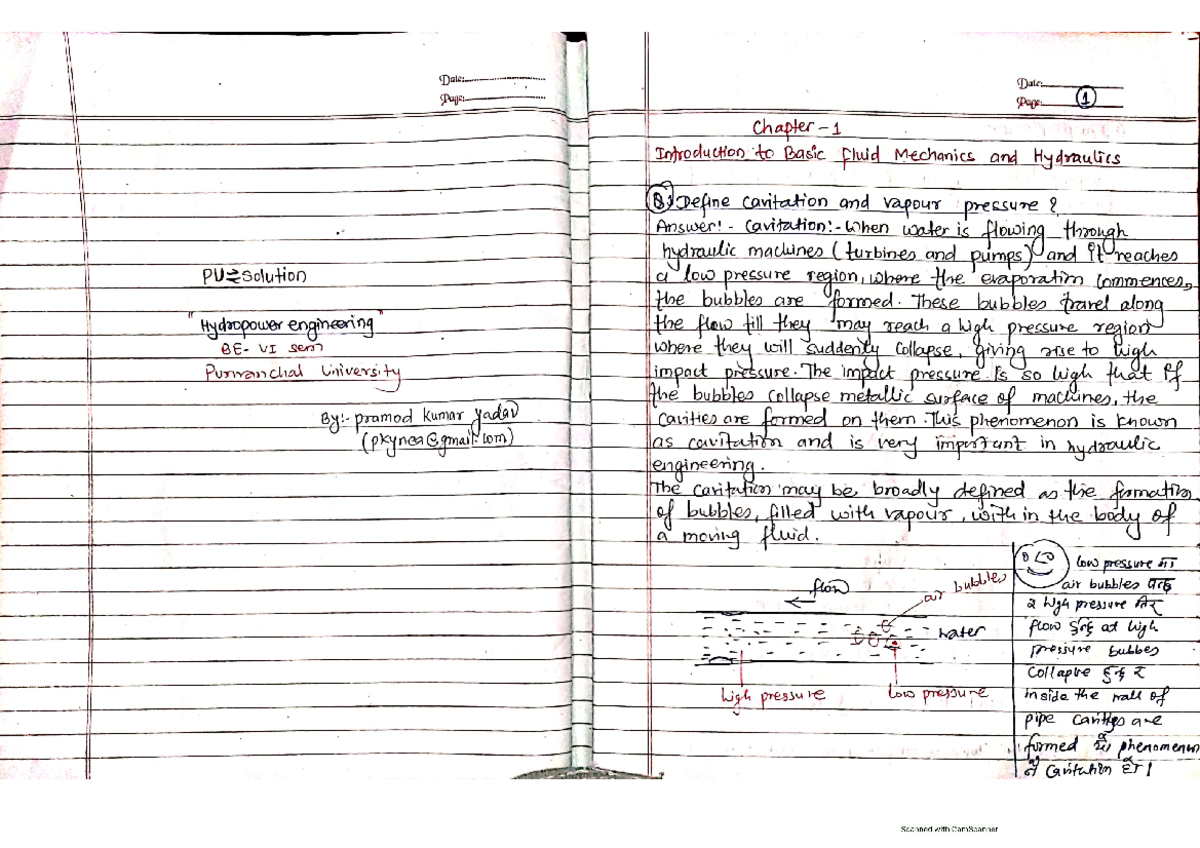 Date:
Page:
PU⇄Solution
"Hydropower engineering"
BE- VI sem
Purwanchal University
By:- pramod kumar yadav
(pkynea@gmail.com)
Date:
Page: 1
Chapter - 1
Introduction to Basic fluid Mechanics and Hydraulics
Q.1 Define cavitation and vapour pressure ?
Answer:- Cavitation:- When water is flowing through
hydraulic machines (turbines and pumps) and it reaches
a low pressure region, where the evaporation commences,
the bubbles are formed. These bubbles travel along
the flow till they may reach a high pressure region
where they will suddenly collapse, giving rise to high
impact pressure. The impact pressure is so high that if
the bubbles collapse metallic surface of machines, the
cavities are formed on them. This phenomenon is known
as cavitation and is very important in hydraulic
engineering.
The cavitation may be broadly defined as the formation
of bubbles, filled with vapour, with in the body of
a moving fluid.
flow
air bubbles
water
high pressure
low pressure
low pressure मा
air bubbles
र high pressure तिर
flow हुन्छ at high
pressure bubbes
collapse हुन्छ र
inside the wall of
pipe cavities are
formed यो phenomenon
नै cavitation हो।
Scanned with CamScanner